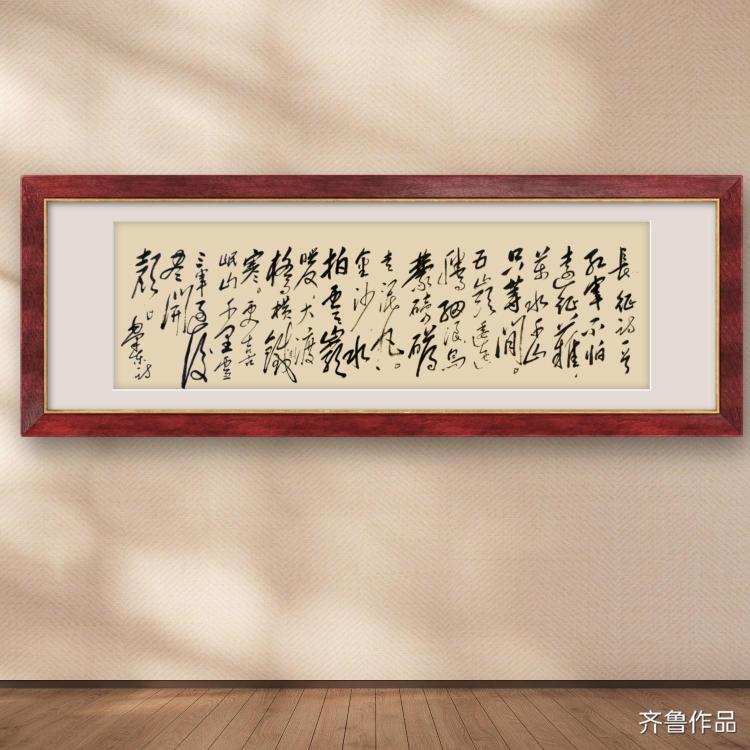 長征詩一首
紅軍不怕
遠征難,
萬水千山
只等閒。
五嶺逶迤
騰細浪,烏
蒙磅礴
走泥丸。
金沙水
拍雲
暖,大渡
橋橫鐵索
寒。更喜
岷山千里雪
三軍過後
盡開
顏。
齐鲁作品